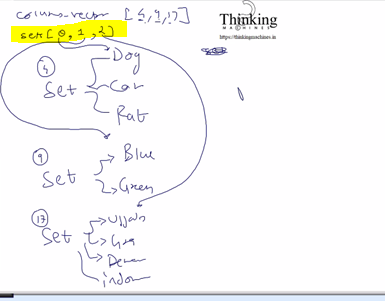 column-vector [4,9,17]
set[0,1,2]
Thinking
MACHINES
https://thinkingmachines.in
4
Set
Dog
Car
Rat
9
Set
Blue
Green
17
Set
Ujjain